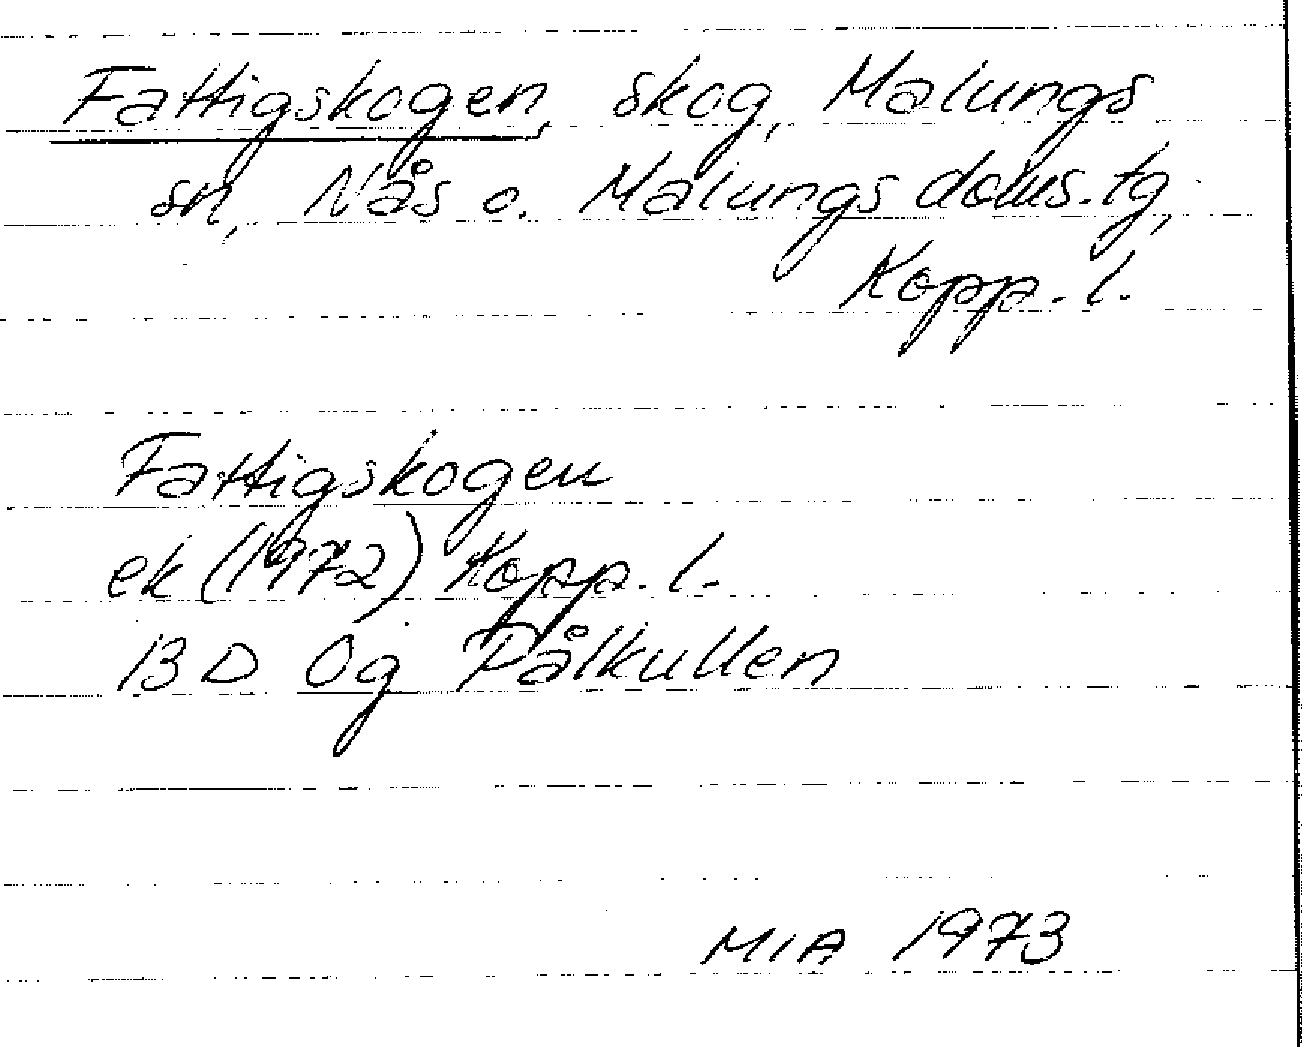 Fattigskogen, skog, Malungs
sn, Nås o. Malungs doms.tg,
Kopp. l.
Fattigskogen
ek (1972) Kopp. l.
13 D Og Pålkullen
MIA 1973